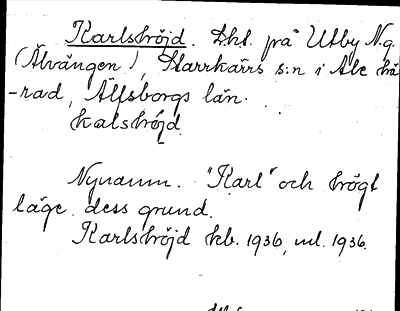 Karlshöjd. Lht. på Utby N.g.
(Älvängen), Starrkärrs s:n i Ale hä
-rad, Älfsborgs län.
kalshöjd
Nynamn. "Karl" och högt
läge dess grund.
Karlshöjd kb. 1936, ml. 1936.